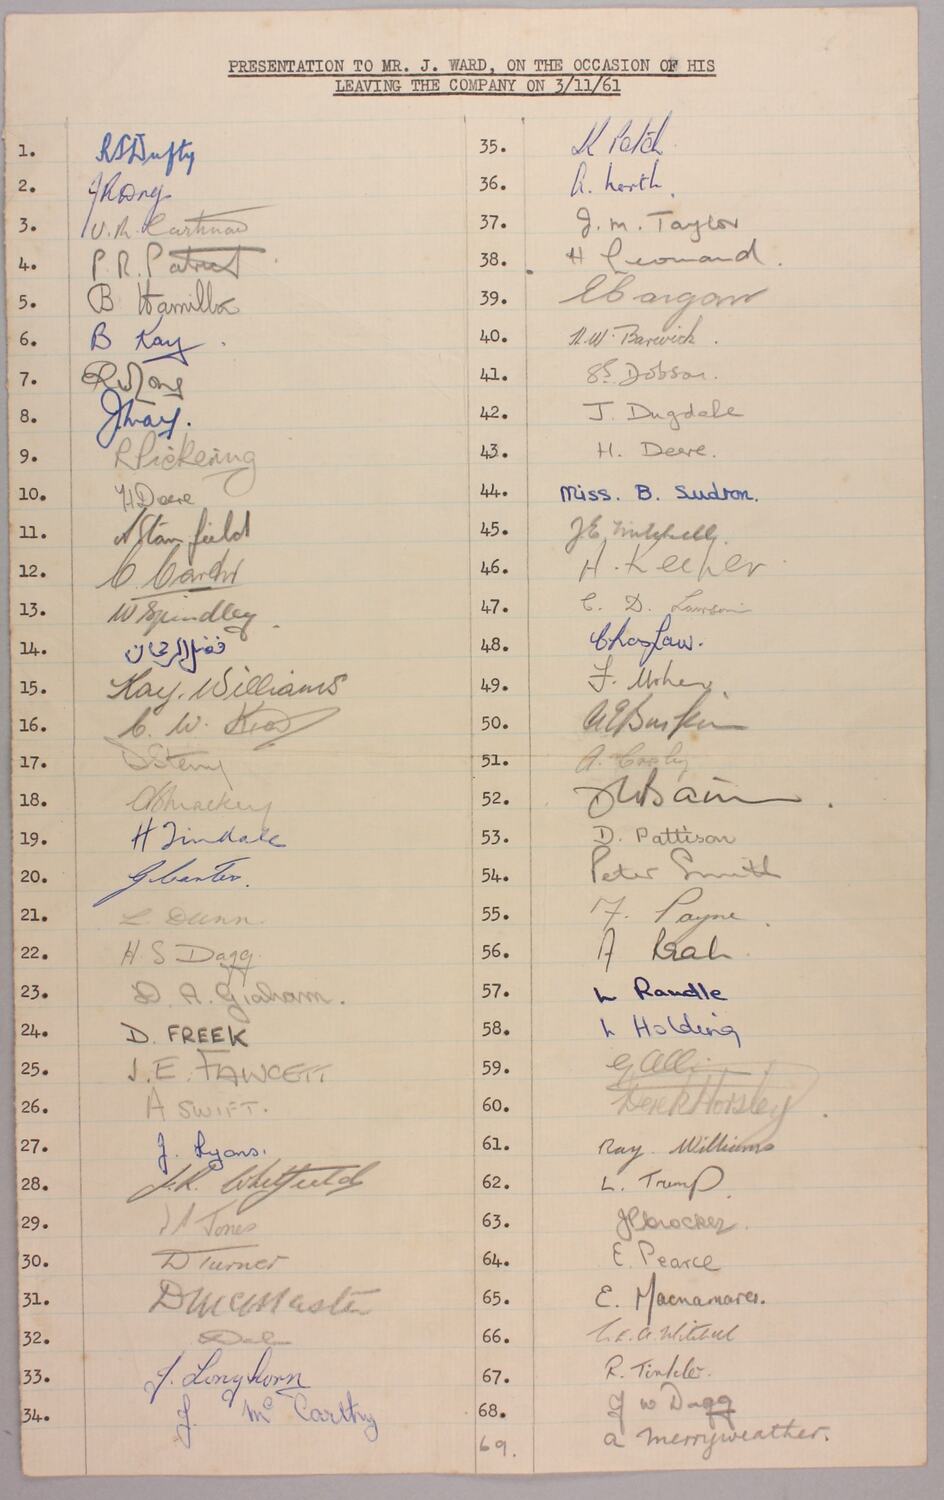 PRESENTATION TO MR. J. WARD, ON THE OCCASION OF HIS
LEAVING THE COMPANY ON 3/11/61
1.
2.
3.
4. P. R.
5. B
6. B Kay
7.
8.
9. R Pickering
10. H Deere
11. A Stansfield
12. C.
13. W Spindley
14. فضل الرحمان
15. Kay. Williams
16. C. W.
17.
18.
19. H Tindale
20. G Canter.
21. L. Dunn.
22. H. S Dagg
23. D. A. Graham.
24. D. FREEK
25. J. E. FAWCETT
26. A SWIFT.
27. J. Lyons.
28. J.R. Whitfield
29. Jones
30. D Turner
31. D McMaster
32.
33. J. Longhorn
34. J. Mc Carthy
35. K Patch
36. A.
37. J. M. Taylor
38. H
39.
40. H. W. Barwick.
41. Dobson.
42. J. Dugdale
43. H. Deere.
44. Miss. B. Sudron.
45. J E Mitchell.
46. H. Keeper
47. C. D. Lawson
48. Chas Law.
49. F.
50.
51. A. Crosby
52.
53. D. Pattison
54. Peter Smith
55. F. Payne
56. A
57. L Randle
58. L Holding
59.
60. Derek Horsley.
61. Ray Williams
62. L. Trump
63.
64. E. Pearce
65. E. Macnamara.
66.
67. R. Tinkler.
68. J W Dagg
69. a merryweather.